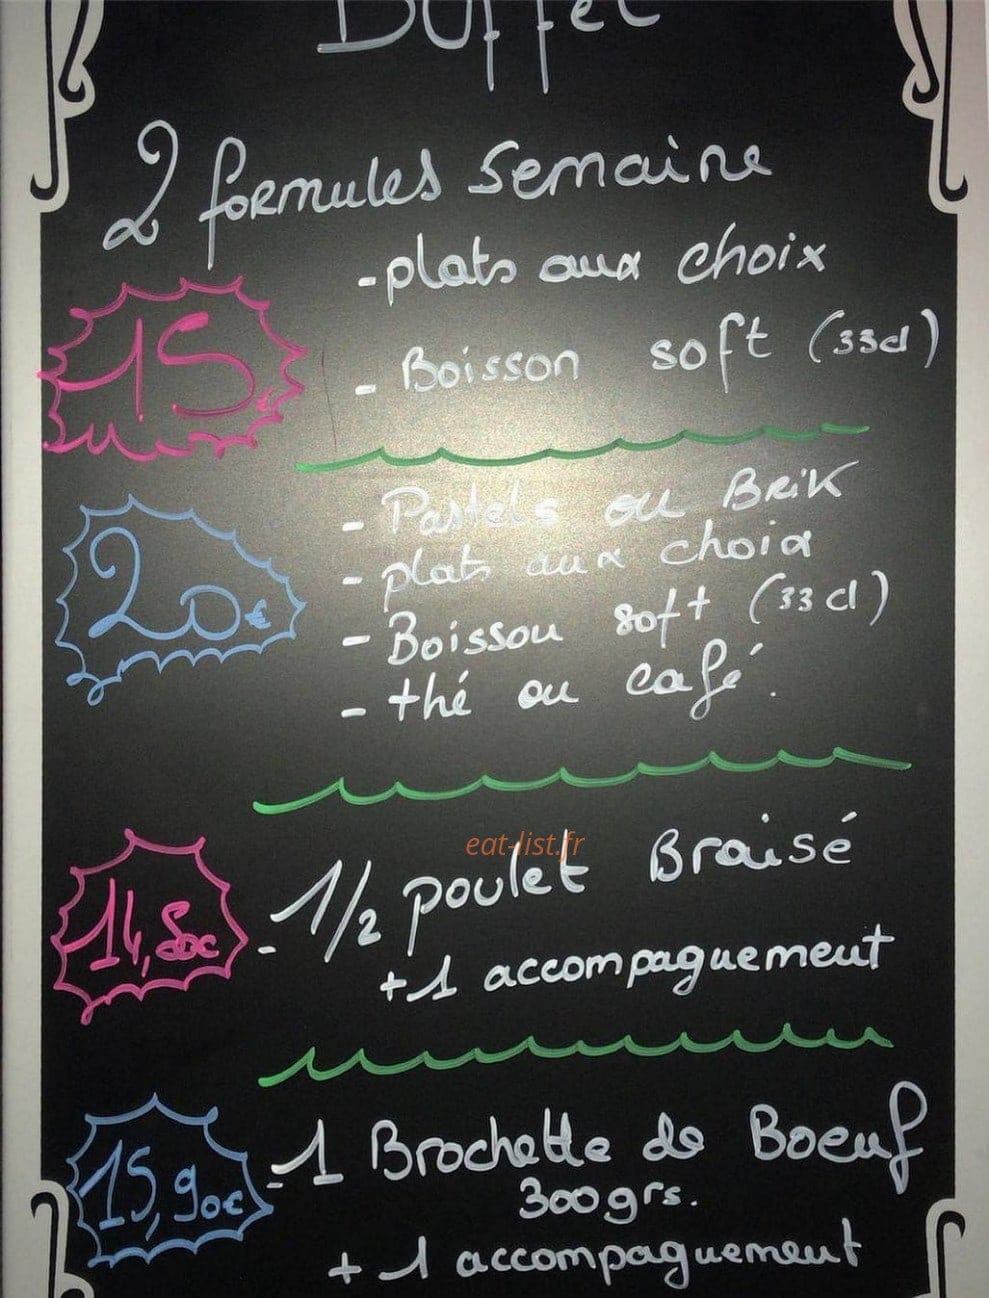 Buffet
2 formules semaine
- plats aux choix
15€
- Boisson soft (33cl)
- Pastels ou BRiK
- plats aux choix
20€
- Boisson soft (33cl)
- thé ou café.
eat-list.fr
- 1/2 poulet Braisé
14,50€
+ 1 accompagnement
- 1 Brochette de Boeuf
15,90€
300grs.
+ 1 accompagnement